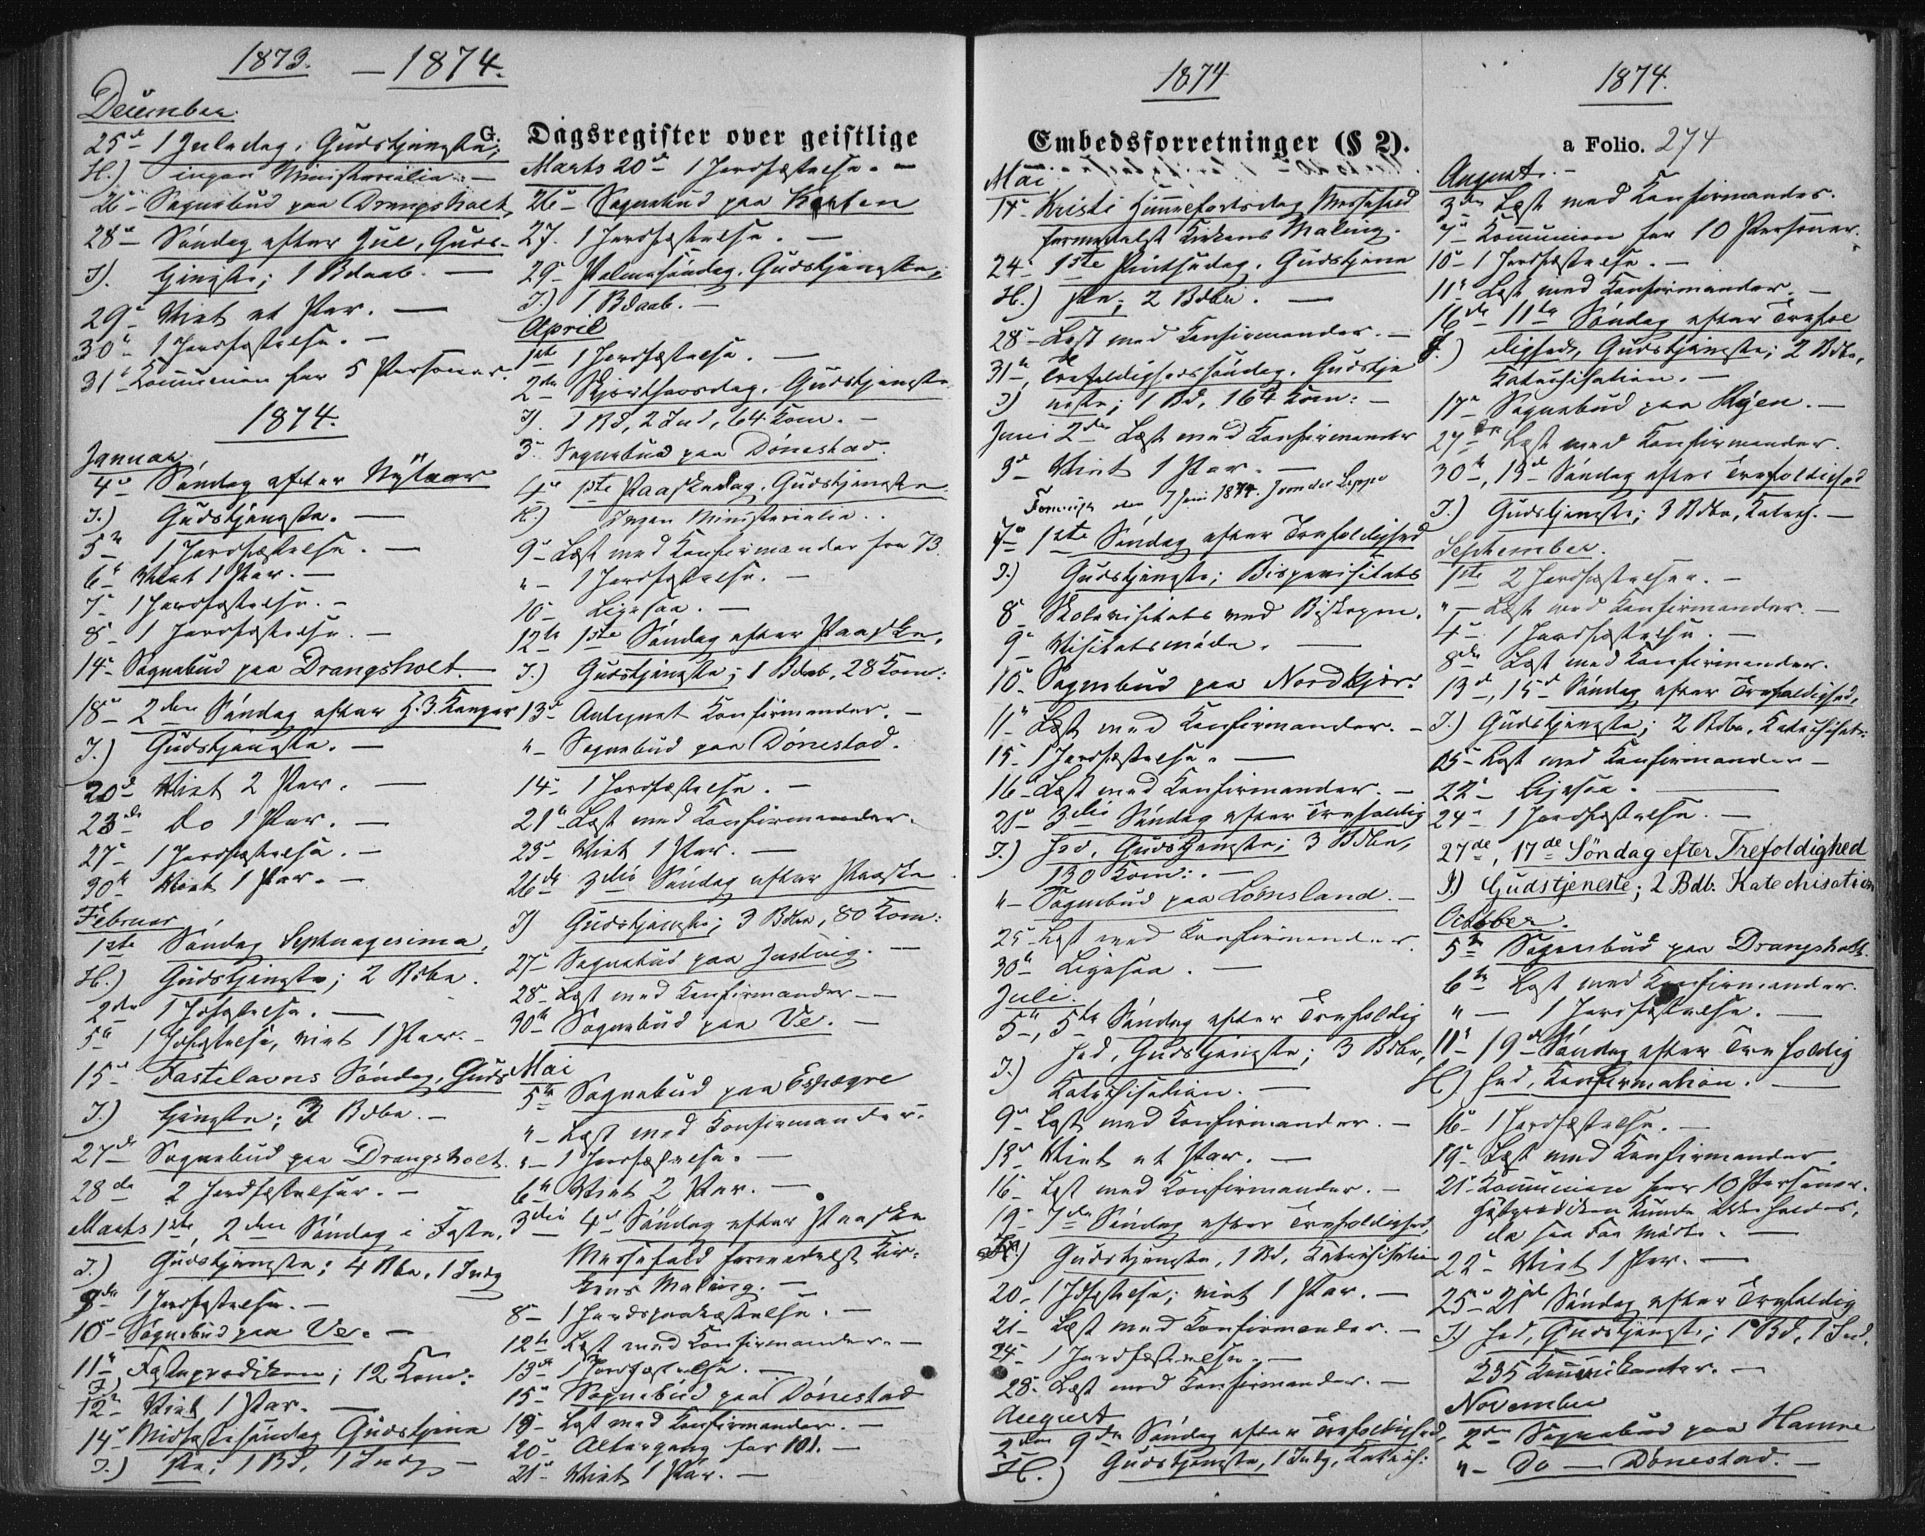 1873. — 1874.
December.
25de 1 Juledag, Gudstjeneste;
H.) ingen Ministerialia. —
26 - Sognebud paa Drangsholt
28de Søndag efter Jul, Guds-
T). tjeneste; 1 Bdaab. —
29de Viet et Par. —
30te 1 Jordfæstelse. —
31te Kommunion for 5 Personer.
1874.
Januar.
4de Søndag efter Nytaar
T.) Gudstjeneste. —
5te 1 Jordfæstelse. —
6te Viet 1 Par. —
7de 1 Jordfæstelse. —
8de 1 Jordfæstelse. —
14de Sognebud paa Drangsholt. —
18de 2den Søndag efter H. 3. Konger
T.) Gudstjeneste. —
20de Viet 2 Par. —
23de Do 1 Par. —
27de 1 Jordfæstelse. —
30te Viet 1 Par. —
Februar
1ste Søndag Septuagesima,
H.) Gudstjeneste; 2 Bdbe.
2den 1 Jdfæstelse. —
5te 1 Jdfæstelse, viet 1 Par. —
15de Fastelavns Søndag, Guds
T.) tjeneste; 3 Bdbe. —
27de Sognebud paa Drangsholt.
28de 2 Jordfæstelser. —
Marts 1ste, 2den Søndag i Faste,
T.) Gudstjeneste; 4 Dbe, 1 Indg
9de 1 Jordfæstelse. —
10de Sognebud paa Ve. —
11te Fasteprædiken; 12 Kom:
12te Viet 1 Par. —
14de Midfastesøndag Gudstjene
T.) ste; 1 Bd, 1 Indg —
G. Dagsregister over geistlige
Marts 20de 1 Jordfæstelse. —
26de Sognebud paa
27. 1 Jordfæstelse. —
29de Palmesøndag, Gudstjeneste;
T) 1 Bdaab. —
April
1ste 1 Jordfæstelse. —
2den Skjærthorsdag, Gudstjeneste
T). 1 Bd, 2 Ind, 64 Kom. —
3. Sognebud paa Dønestad.
4de 1ste Paaskedag. Gudstjeneste.
H.) Ingen Ministerialia.
9de Læst med Konfirmander fra 73.
" — 1 Jordfæstelse. —
10de Ligesaa. —
12te 1ste Søndag efter Paaske,
T.) Gudstjeneste; 1 Bdaab, 28 Kom:
13de Antegnet Konfirmander. —
" — Sognebud paa Dønestad.
14de 1 Jordfæstelse. —
21de Læst med Konfirmander.
25de Viet 1 Par. —
26de 3die Søndag efter Paaske
T) Gudstjeneste; 3 Bdbe, 80 Kom:
27de Sognebud paa Justvig. —
28de Læst med Konfirmander —
30te Sognebud paa Ve. —
Mai
5te Sognebud paa Espegre
" — Læst med Konfirmander. —
" — 1 Jordfæstelse. —
6te Viet 2 Par. —
3die 4de Søndag efter Paaske
Messefald formedelst Kir-
kens Maling. —
8de 1 Jordspaakastelse. —
12te Læst med Konfirmander. —
13de 1 Jordfæstelse. —
15de Sognebud paa Dønestad
19de Læst med Konfirmander. —
20de Altergang for 101. —
21de Viet 1 Par. —
1874
Embedsforretninger (§ 2).
Mai
14de Kristi Himmelfartsdag Messefald
formedelst Kirkens Maling.
24. 1ste Pintsedag. Gudstjene
H.) ste; 2 Bdbe. —
28de Læst med Konfirmander. —
31te Trefoldighedssøndag. Gudstje
T) neste; 1 Bd, 164 Kom: —
Juni 2den Læst med Konfirmander
3de Viet 1 Par. —
7 Juni 1874.
7de 1ste Søndag efter Trefoldighed
T.) Gudstjeneste; Bispevisitats
8de Skolevisitats med Biskopen.
9de Visitatsmøde. —
10de Sognebud paa Nordkjær.
11te Læst med Konfirmander. —
15de 1 Jordfæstelse. —
16de Læst med Konfirmander. —
21de 3die Søndag efter Trefoldig
T.) hed, Gudstjeneste; 3 Bdbe,
130 Kom: —
" — Sognebud paa Lømsland. —
25de Læst med Konfirmander.
30te Ligesaa. —
Juli.
5te, 5te Søndag efter Trefoldig
T.) hed, Gudstjeneste; 3 Bdbe,
Katekisation. —
9de Læst med Konfirmander. —
13de Viet et Par. —
16de Læst med Konfirmander. —
19de 7de Søndag efter Trefoldighed,
Gudstjeneste, 1 Bd, Katekisation
20. 1 Jdfæstelse; viet 1 Par. —
21. Læst med Konfirmander. —
24de 1 Jordfæstelse. —
28de Læst med Konfirmander. —
August
2den 9de Søndag efter Trefoldighed,
H.) Gudstjeneste, 1 Indg, Katek:
1874.
a Folio. 274
August. —
3die Læst med Konfirmander.
7de Kommunion for 10 Personer.
10de 1 Jordfæstelse. —
11te Læst med Konfirmander. —
16de 11te Søndag efter Trefol
T.) dighed, Gudstjeneste; 2 Bdbe,
Katechisation. —
17de Sognebud paa Ryen. —
27de Læst med Konfirmander.
30te, 13de Søndag efter Trefoldighed
T.) Gudstjeneste; 3 Bdbe, Katech. —
September.
1ste 2 Jordfæstelser. —
" — Læst med Konfirmander. —
4de 1 Jordfæstelse. —
8de Læst med Konfirmander.
13de, 15de Søndag efter Trefoldighed,
T.) Gudstjeneste; 2 Bdbe, Katechisat:
15de Læst med Konfirmander —
22de Ligesaa. —
24de 1 Jordfæstelse. —
27de, 17de Søndag efter Trefoldighed
T.) Gudstjeneste; 2 Bdb. Katechisation
October.
5te Sognebud paa Drangsholt.
6te Læst med Konfirmander.
" — 1 Jordfæstelse. —
11te 19de Søndag efter Trefoldig
H.) hed, Konfirmation. —
16de 1 Jordfæstelse. —
19de Læst med Konfirmander.
21de Kommunion for 10 Personer.
Høstprædiken kunde ikke holdes,
da saa Faa mødte. —
22de Viet 1 Par. —
25de 21de Søndag efter Trefoldig
T.) hed, Gudstjeneste; 1 Bd, 1 Ind.
235 Kommunikanter. —
November
2den Sognebud paa Hamre
" — Do — Dønestad. —